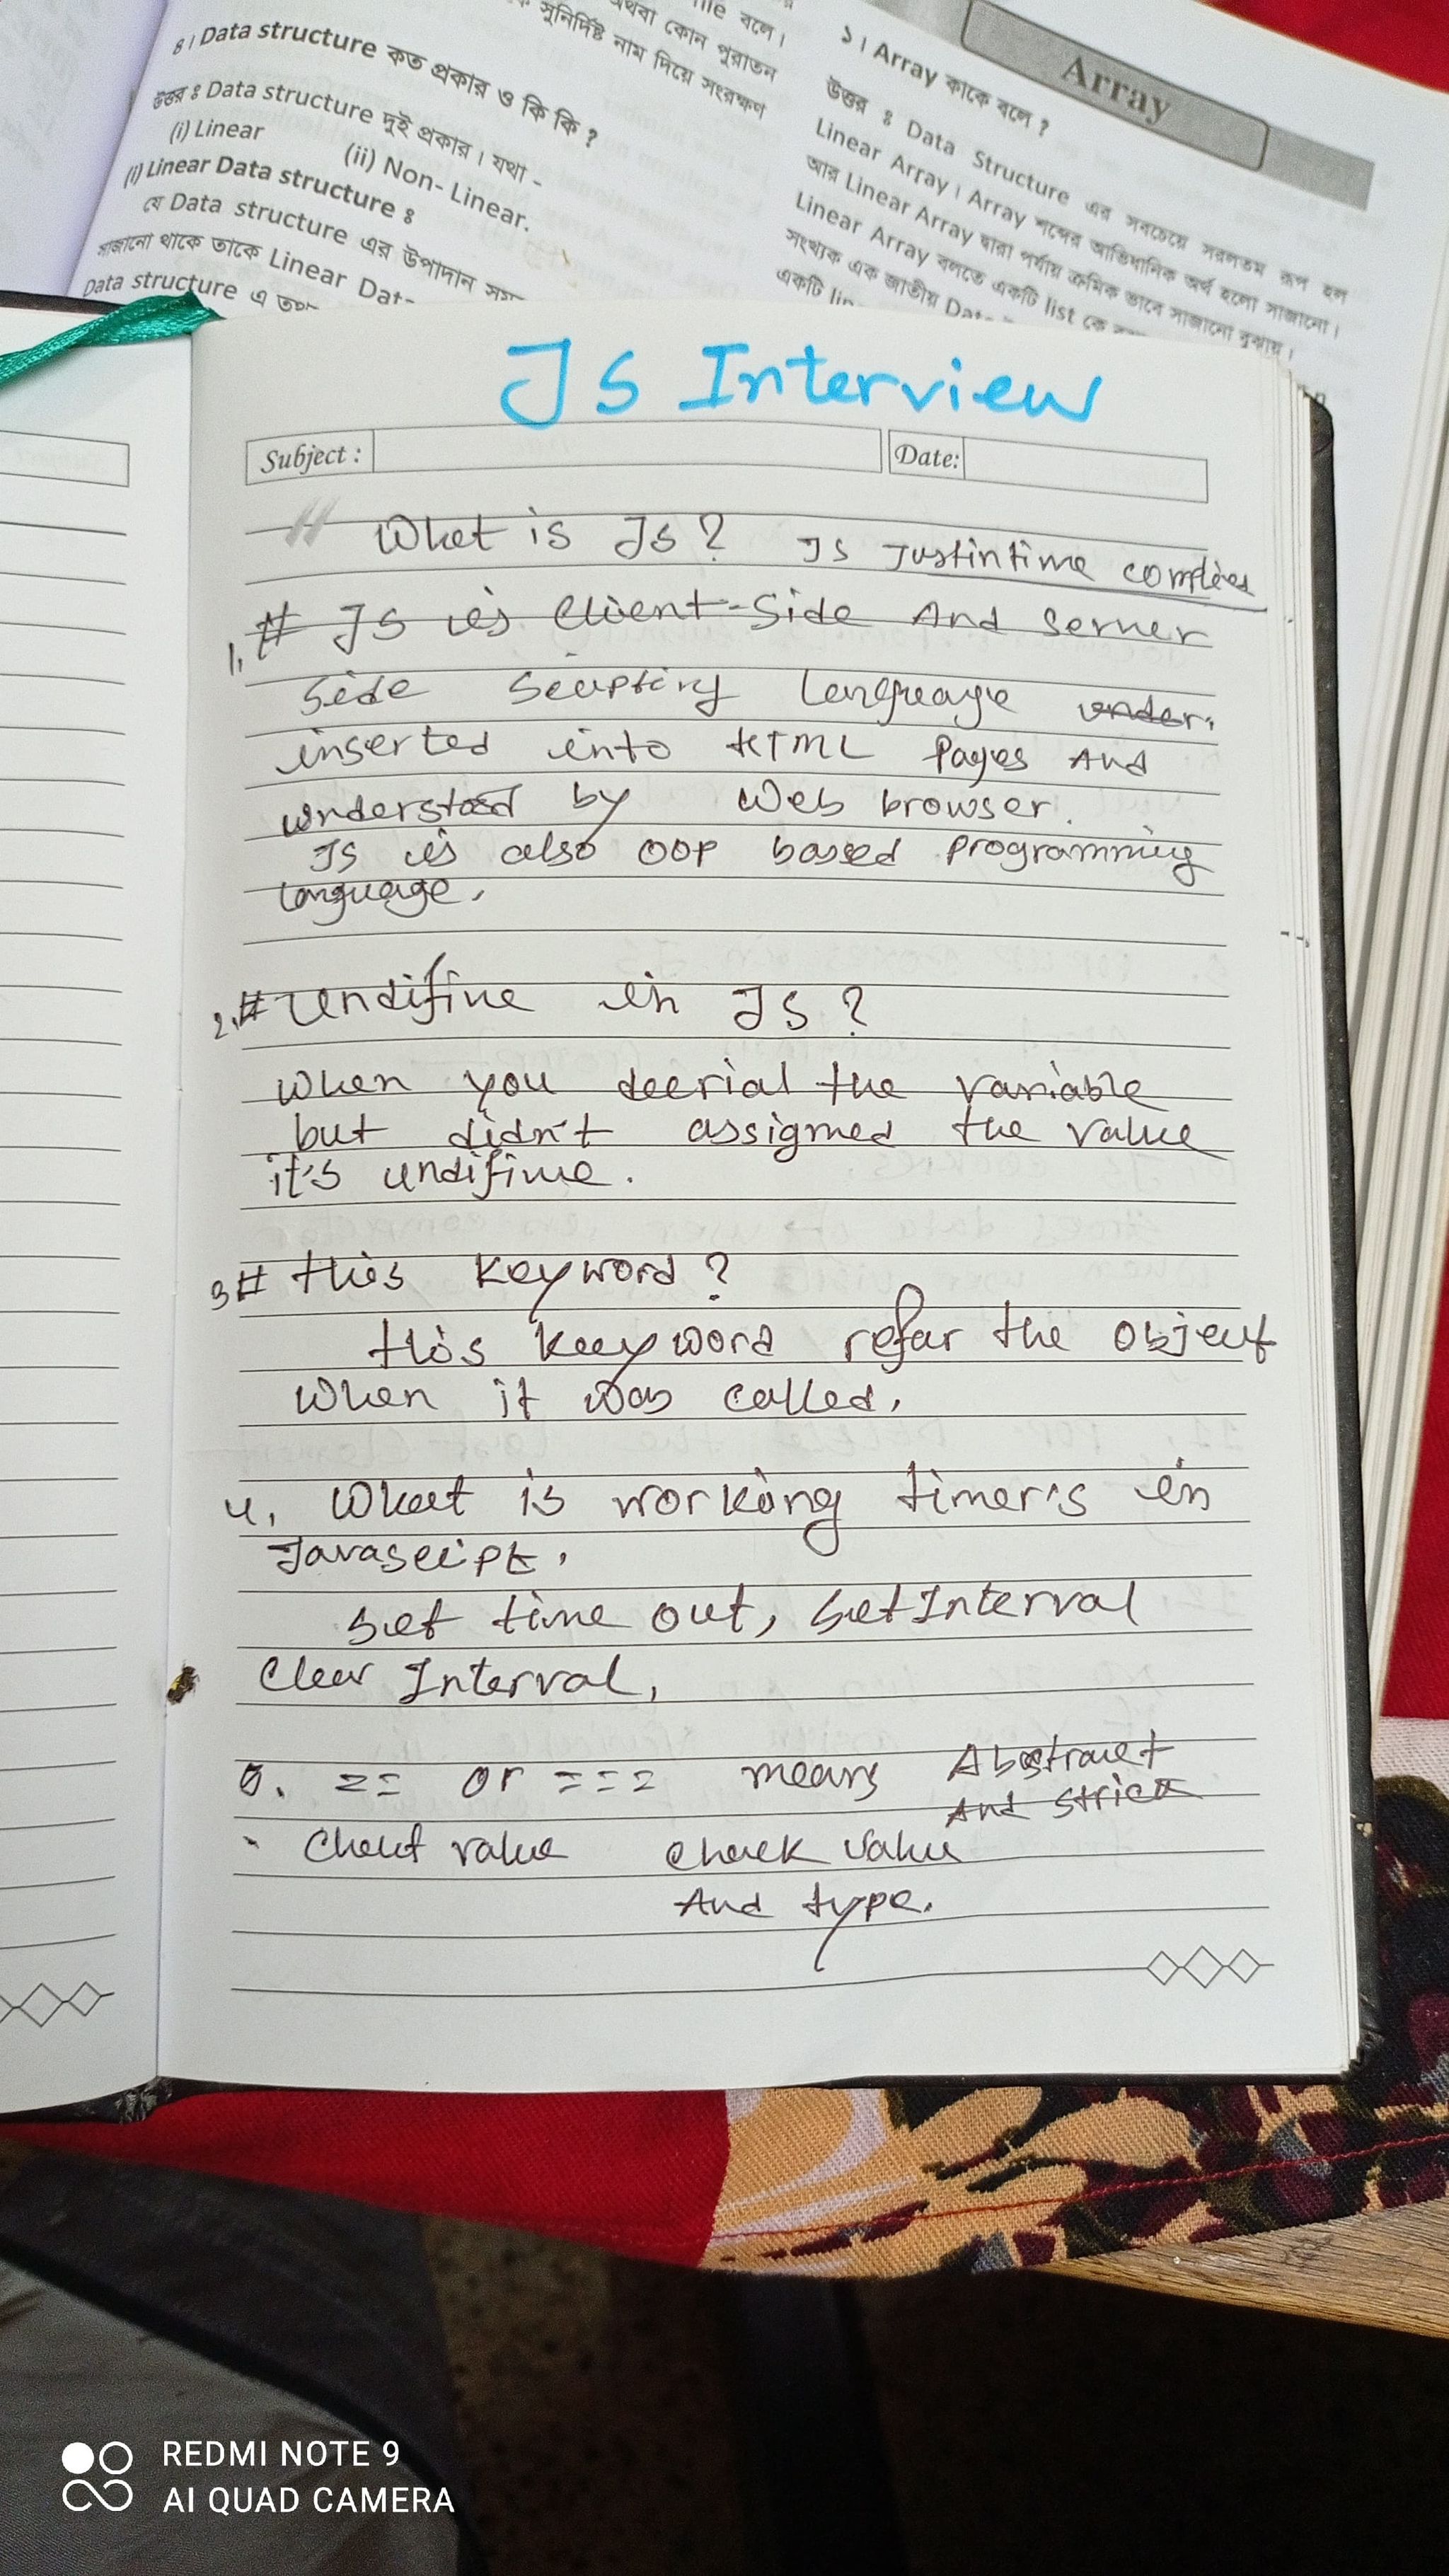 ৪। Data structure কত প্রকার ও কি কি ?
উত্তর ঃ Data structure দুই প্রকার। যথা -
(i) Linear (ii) Non- Linear.
(i) Linear Data structure ঃ
যে Data structure এর উপাদান
সাজানো থাকে তাকে Linear Dat-
Data structure এ
file বলে।
অথবা কোন পুরাতন
সুনির্দিষ্ট নাম দিয়ে সংরক্ষণ
Array
১। Array কাকে বলে ?
উত্তর ঃ Data Structure এর সবচেয়ে সরলতম রূপ হল
Linear Array। Array শব্দের আভিধানিক অর্থ হলো সাজানো।
আর Linear Array দ্বারা পর্যায় ক্রমিক ভাবে সাজানো বুঝায়।
Linear Array বলতে একটি list কে
সংখ্যক এক জাতীয় Data
একটি lin
JS Interview
Subject :
Date:
What is JS? JS Justintime
1. # JS is Client-Side And Server
Side Scripting Language under.
inserted into HTML Pages And
understood by Web browser.
JS is also OOP based programming
language.
2. # Undifine in JS ?
When you deerial the variable
but didn't assigmed the value
it's undifine.
3 # this keyword ?
this keeyword refar the object
when it was called.
4. What is working timer's in
Javascript.
Set time out, SetInterval
Clear Interval,
5. == or === means Abstract
And strict
Check value check value
And type.
REDMI NOTE 9
AI QUAD CAMERA